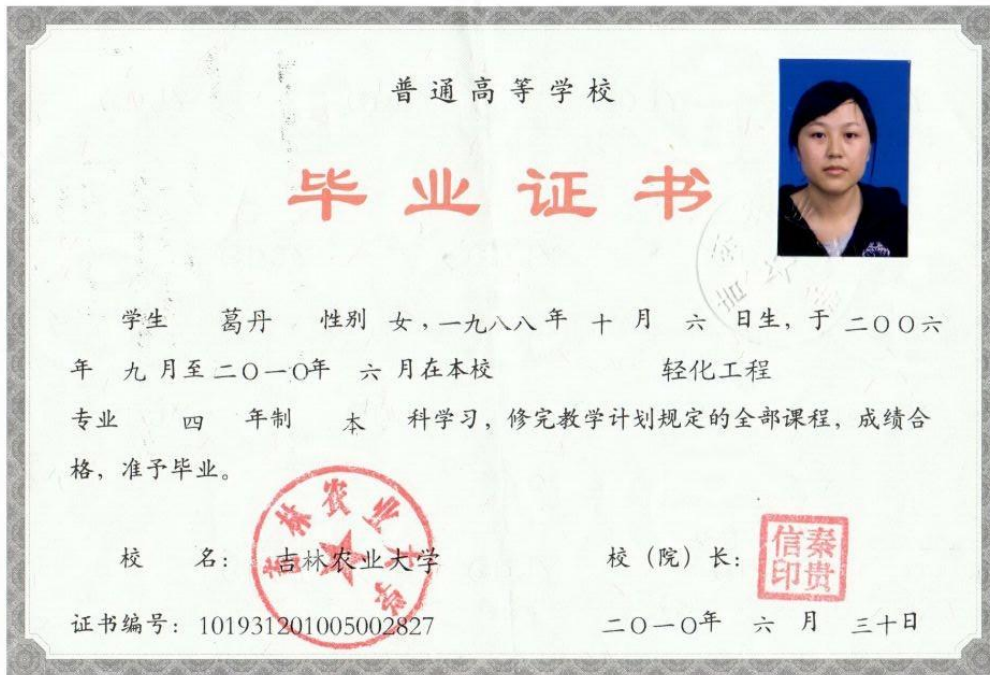 普通高等学校
毕业证书
学生 葛丹 性别 女，一九八八年 十 月 六 日生，于 二〇〇六
年 九 月至 二〇一〇年 六 月在本校 轻化工程
专业 四 年制 本 科学习，修完教学计划规定的全部课程，成绩合
格，准予毕业。
校 名：吉林农业大学 校（院）长：
吉林农业大学
秦贵信印
证书编号：101931201005002827 二〇一〇年 六 月 三十日